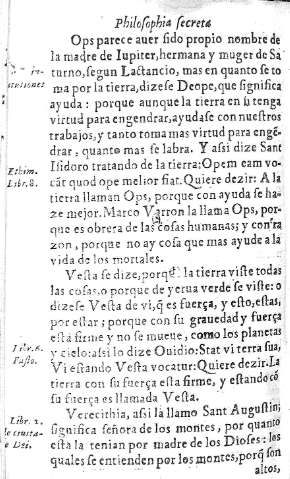 Philosophia secreta
Ops parece auer sido propio nombre de
la madre de Iupiter, hermana y muger de Sa
turno, segun Lactancio, mas en quanto se to
ma por la tierra, dizese Deope, que significa
ayuda: porque aunque la tierra en si tenga
virtud para engendrar, ayudase con nuestros
trabajos, y tanto toma mas virtud para engẽ
drar, quanto mas se labra. Y assi dize Sant
Isidoro tratando de la tierra: Opem eam vo-
cãt quod ope melior fiat. Quiere dezir: A la
tierra llaman Ops, porque con ayuda se ha-
ze mejor. Marco Varron la llama Ops, por-
que es obrera de las cosas humanas; y con ra
zon, porque no ay cosa que mas ayude a la
vida de los mortales.
Vesta se dize, porq̃ la tierra viste todas
las cosas, o porque de yerua verde se viste: o
dizese Vesta de vi, q̃ es fuerça, y esto, estas,
por estar; porque con su grauedad y fuerça
està firme y no se mueue, como los planetas
y cielo: assi lo dize Ouidio: Stat vi terra sua,
Vi estando Vesta vocatur: Quiere dezir. La
tierra con su fuerça esta firme, y estando cõ
su fuerça es llamada Vesta.
Verecithia, assi la llamo Sant Augustin,
significa señora de los montes, por quanto
esta la tenian por madre de los Dioses: los
quales se entienden por los montes, porq̃ son
altos,
Ethim.
Libr. 8.
Libr. 6.
Fasto.
Libr. 2.
Dei.